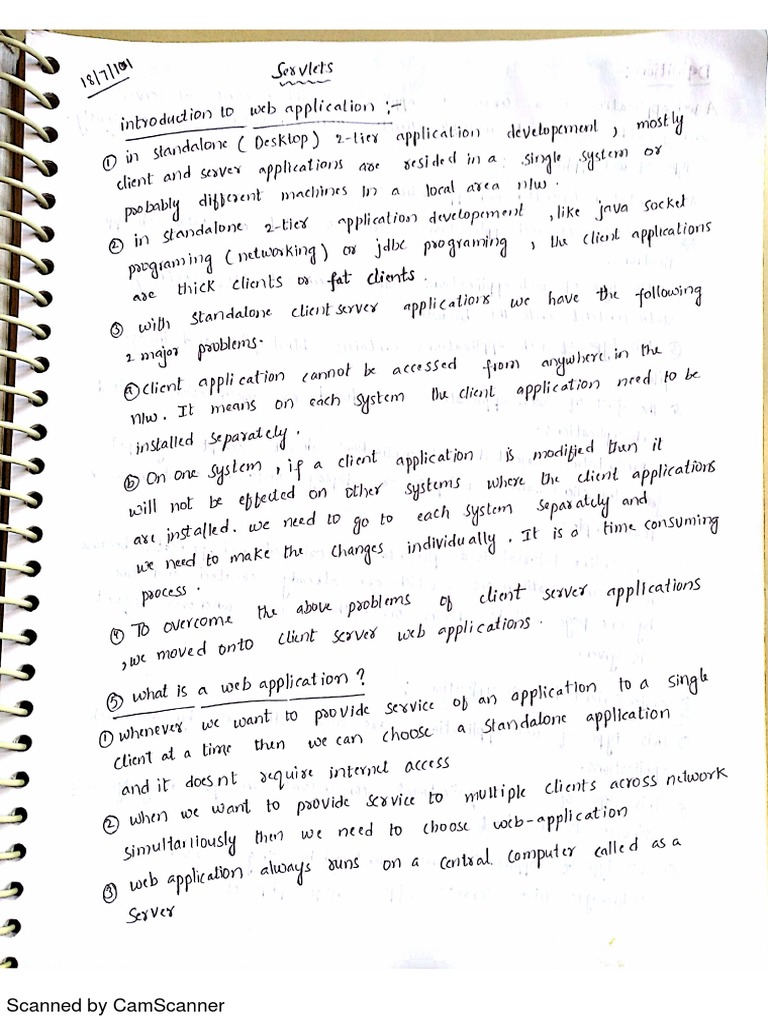 Servlets
introduction to web application :-
① in standalone ( Desktop ) 2-tier application developement , mostly
client and server applications are resided in a single system or
probably different machines in a local area n/w.
② in standalone 2-tier application developement , like java socket
programing ( networking ) or jdbc programing , the client applications
are thick clients or fat clients.
③ with standalone client server applications we have the following
2 major problems.
ⓐ client application cannot be accessed from anywhere in the
n/w. It means on each system the client application need to be
installed separately.
ⓑ On one system , if a client application is modified then it
will not be effected on other systems where the client applications
are installed. we need to go to each system separately and
we need to make the changes individually. It is a time consuming
process.
④ To overcome the above problems of client server applications
, we moved onto client server web applications.
⑤ what is a web application ?
① whenever we want to provide service of an application to a single
client at a time then we can choose a standalone application
and it doesnt require internet access
② when we want to provide service to multiple clients across network
then we need to choose web-application
③ web application always runs on a central computer called as a
server
Scanned by CamScanner